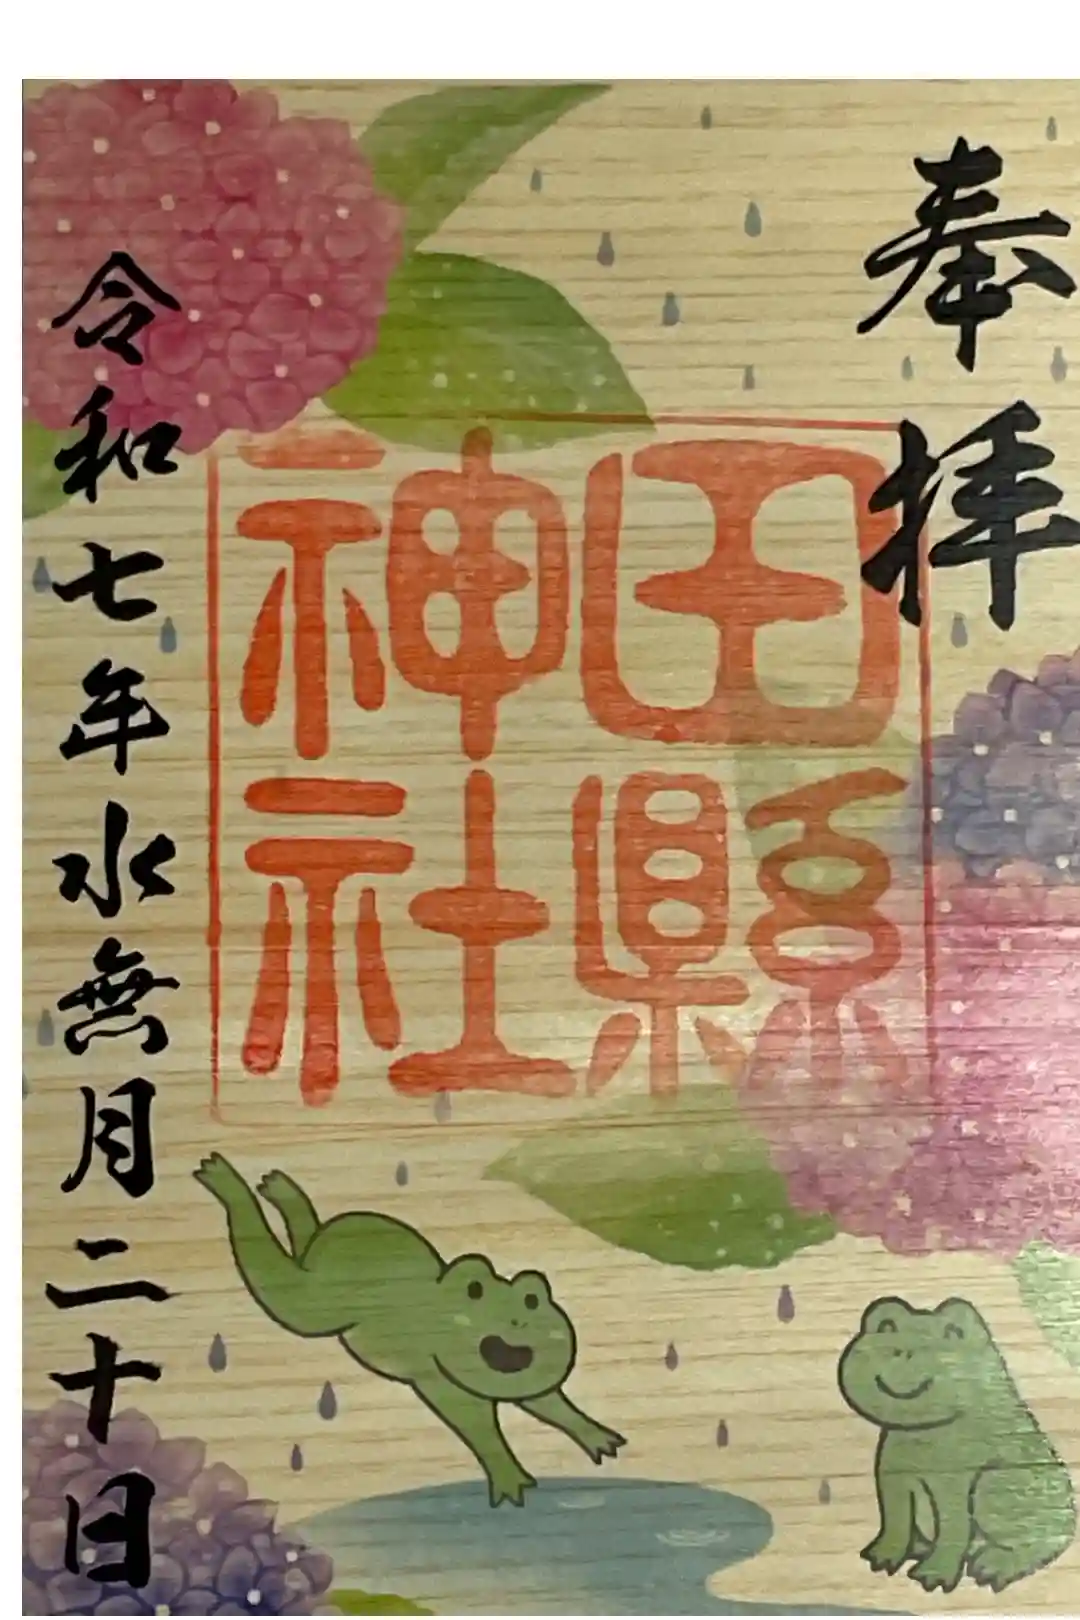 奉拝
田縣
神社
令和七年水無月二十日